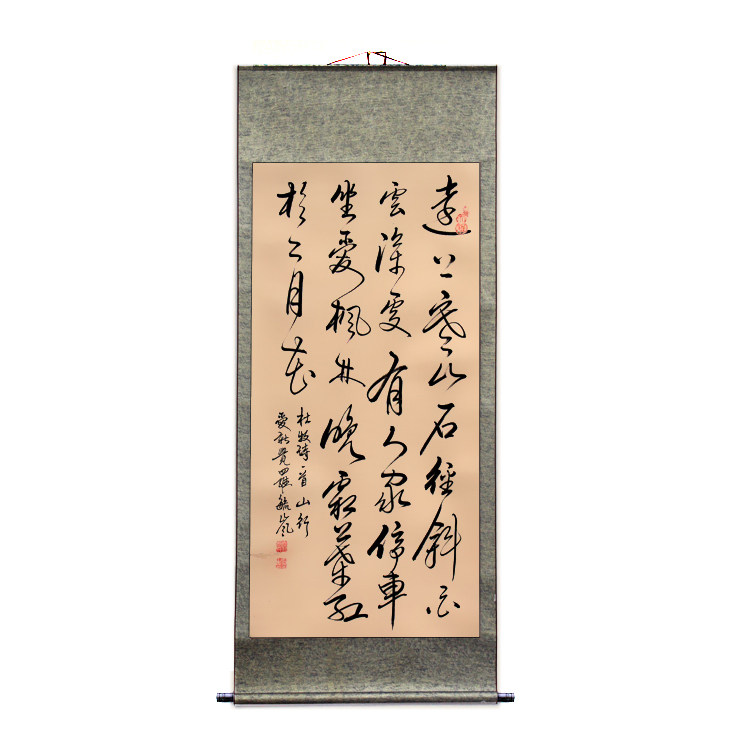 遠上寒山石徑斜白
雲深處有人家停車
坐愛楓林晚霜葉紅
於二月花
杜牧詩一首山行
愛新覺羅毓嵐